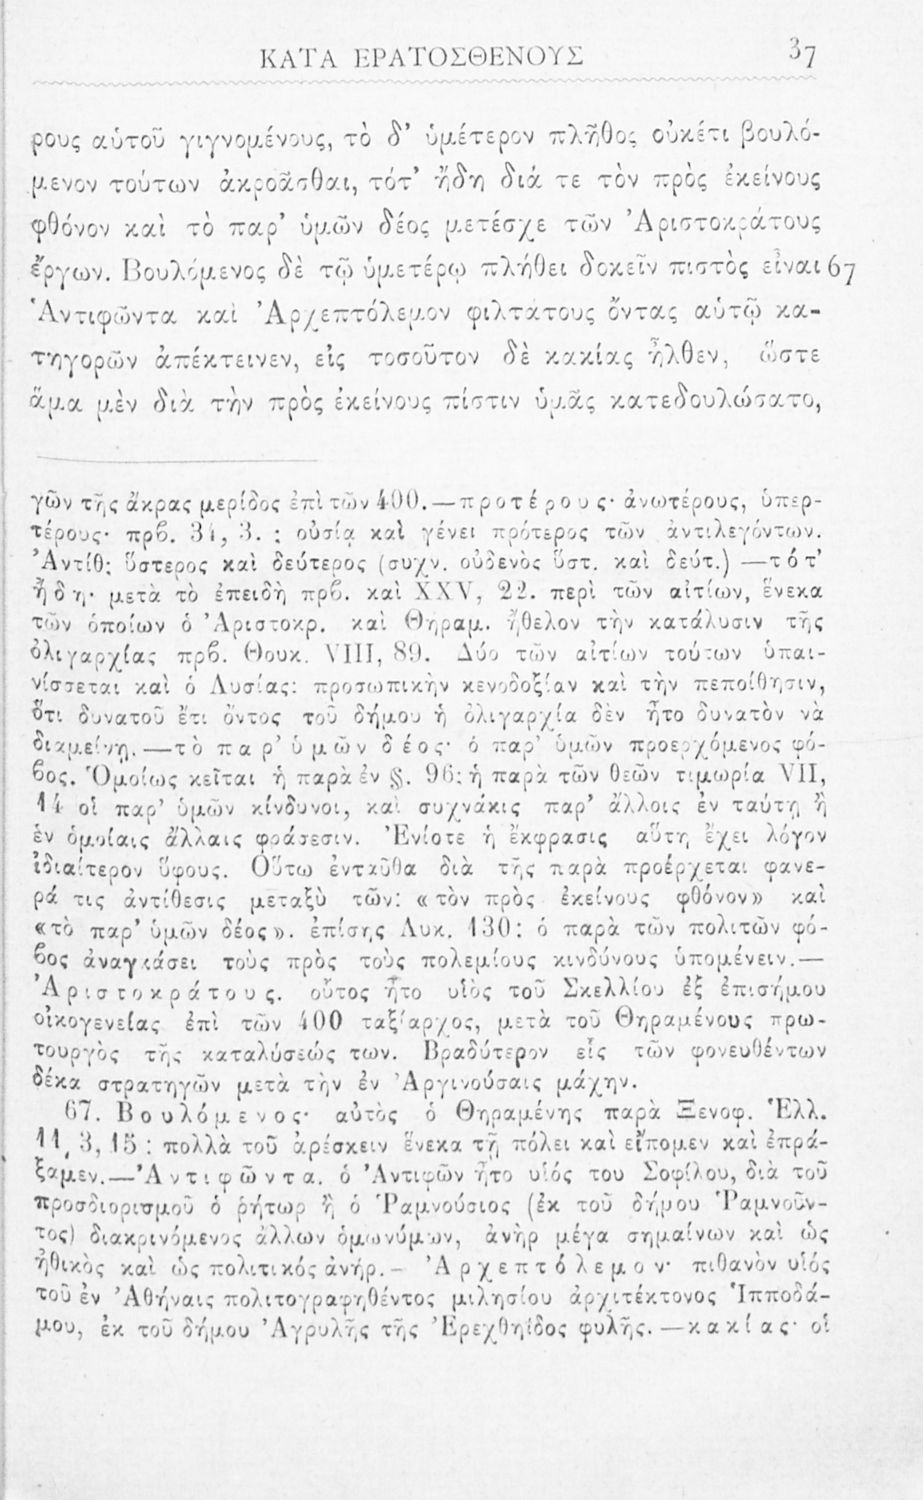 ΚΑΤΑ ΕΡΑΤΟΣΘΕΝΟΥΣ 37
ρους αὑτοῦ γιγνομένους, τὸ δ’ ὑμέτερον πλῆθος οὐκέτι βουλό-
μενον τούτων ἀκροᾶσθαι, τότ’ ἤδη διά τε τὸν πρὸς ἐκείνους
φθόνον καὶ τὸ παρ’ ὑμῶν δέος μετέσχε τῶν Ἀριστοκράτους
ἔργων. Βουλόμενος δὲ τῷ ὑμετέρῳ πλήθει δοκεῖν πιστὸς εἶναι 67
Ἀντιφῶντα καὶ Ἀρχεπτόλεμον φιλτάτους ὄντας αὑτῷ κα-
τηγορῶν ἀπέκτεινεν, εἰς τοσοῦτον δὲ κακίας ἦλθεν, ὥστε
ἅμα μὲν διὰ τὴν πρὸς ἐκείνους πίστιν ὑμᾶς κατεδουλώσατο,
γῶν τῆς ἄκρας μερίδος ἐπὶ τῶν 400. — προτέρους· ἀνωτέρους, ὑπερ-
τέρους· πρβ. 34, 3. : οὐσίᾳ καὶ γένει πρότερος τῶν ἀντιλεγόντων.
Ἀντίθ: ὕστερος καὶ δεύτερος (συχν. οὐδενὸς ὕστ. καὶ δεύτ.) — τότ’
ἤδη· μετὰ τὸ ἐπειδὴ πρβ. καὶ XXV, 22. περὶ τῶν αἰτίων, ἕνεκα
τῶν ὁποίων ὁ Ἀριστοκρ. καὶ Θηραμ. ἤθελον τὴν κατάλυσιν τῆς
ὀλιγαρχίας πρβ. Θουκ. VIII, 89. Δύο τῶν αἰτίων τούτων ὑπαι-
νίσσεται καὶ ὁ Λυσίας: προσωπικὴν κενοδοξίαν καὶ τὴν πεποίθησιν,
ὅτι δυνατοῦ ἔτι ὄντος τοῦ δήμου ἡ ὀλιγαρχία δὲν ἦτο δυνατὸν νὰ
διαμείνῃ. — τὸ παρ’ ὑμῶν δέος· ὁ παρ’ ὑμῶν προερχόμενος φό-
βος. Ὁμοίως κεῖται ἡ παρὰ ἐν §. 96: ἡ παρὰ τῶν θεῶν τιμωρία VII,
14 οἱ παρ’ ὑμῶν κίνδυνοι, καὶ συχνάκις παρ’ ἄλλοις ἐν ταύτῃ ἢ
ἐν ὁμοίαις ἄλλαις φράσεσιν. Ἐνίοτε ἡ ἔκφρασις αὕτη ἔχει λόγον
ἰδιαίτερον ὕφους. Οὕτω ἐνταῦθα διὰ τῆς παρὰ προέρχεται φανε-
ρά τις ἀντίθεσις μεταξὺ τῶν: «τὸν πρὸς ἐκείνους φθόνον» καὶ
«τὸ παρ’ ὑμῶν δέος». ἐπίσης Λυκ. 130: ὁ παρὰ τῶν πολιτῶν φό-
βος ἀναγκάσει τοὺς πρὸς τοὺς πολεμίους κινδύνους ὑπομένειν. —
Ἀριστοκράτους. οὗτος ἦτο υἱὸς τοῦ Σκελλίου ἐξ ἐπισήμου
οἰκογενείας ἐπὶ τῶν 400 ταξίαρχος, μετὰ τοῦ Θηραμένους πρω-
τουργὸς τῆς καταλύσεώς των. Βραδύτερον εἷς τῶν φονευθέντων
δέκα στρατηγῶν μετὰ τὴν ἐν Ἀργινούσαις μάχην.
67. Βουλόμενος· αὐτὸς ὁ Θηραμένης παρὰ Ξενοφ. Ἑλλ.
11, 3, 15 : πολλὰ τοῦ ἀρέσκειν ἕνεκα τῇ πόλει καὶ εἴπομεν καὶ ἐπρά-
ξαμεν. — Ἀντιφῶντα. ὁ Ἀντιφῶν ἦτο υἱός του Σοφίλου, διὰ τοῦ
προσδιορισμοῦ ὁ ῥήτωρ ἢ ὁ Ῥαμνούσιος (ἐκ τοῦ δήμου Ῥαμνοῦν-
τος) διακρινόμενος ἄλλων ὁμωνύμων, ἀνὴρ μέγα σημαίνων καὶ ὡς
ἠθικὸς καὶ ὡς πολιτικός ἀνήρ. – Ἀρχεπτόλεμον· πιθανὸν υἱός
τοῦ ἐν Ἀθήναις πολιτογραφηθέντος μιλησίου ἀρχιτέκτονος Ἱπποδά-
μου, ἐκ τοῦ δήμου Ἀγρυλῆς τῆς Ἐρεχθηΐδος φυλῆς. — κακίας· οἱ